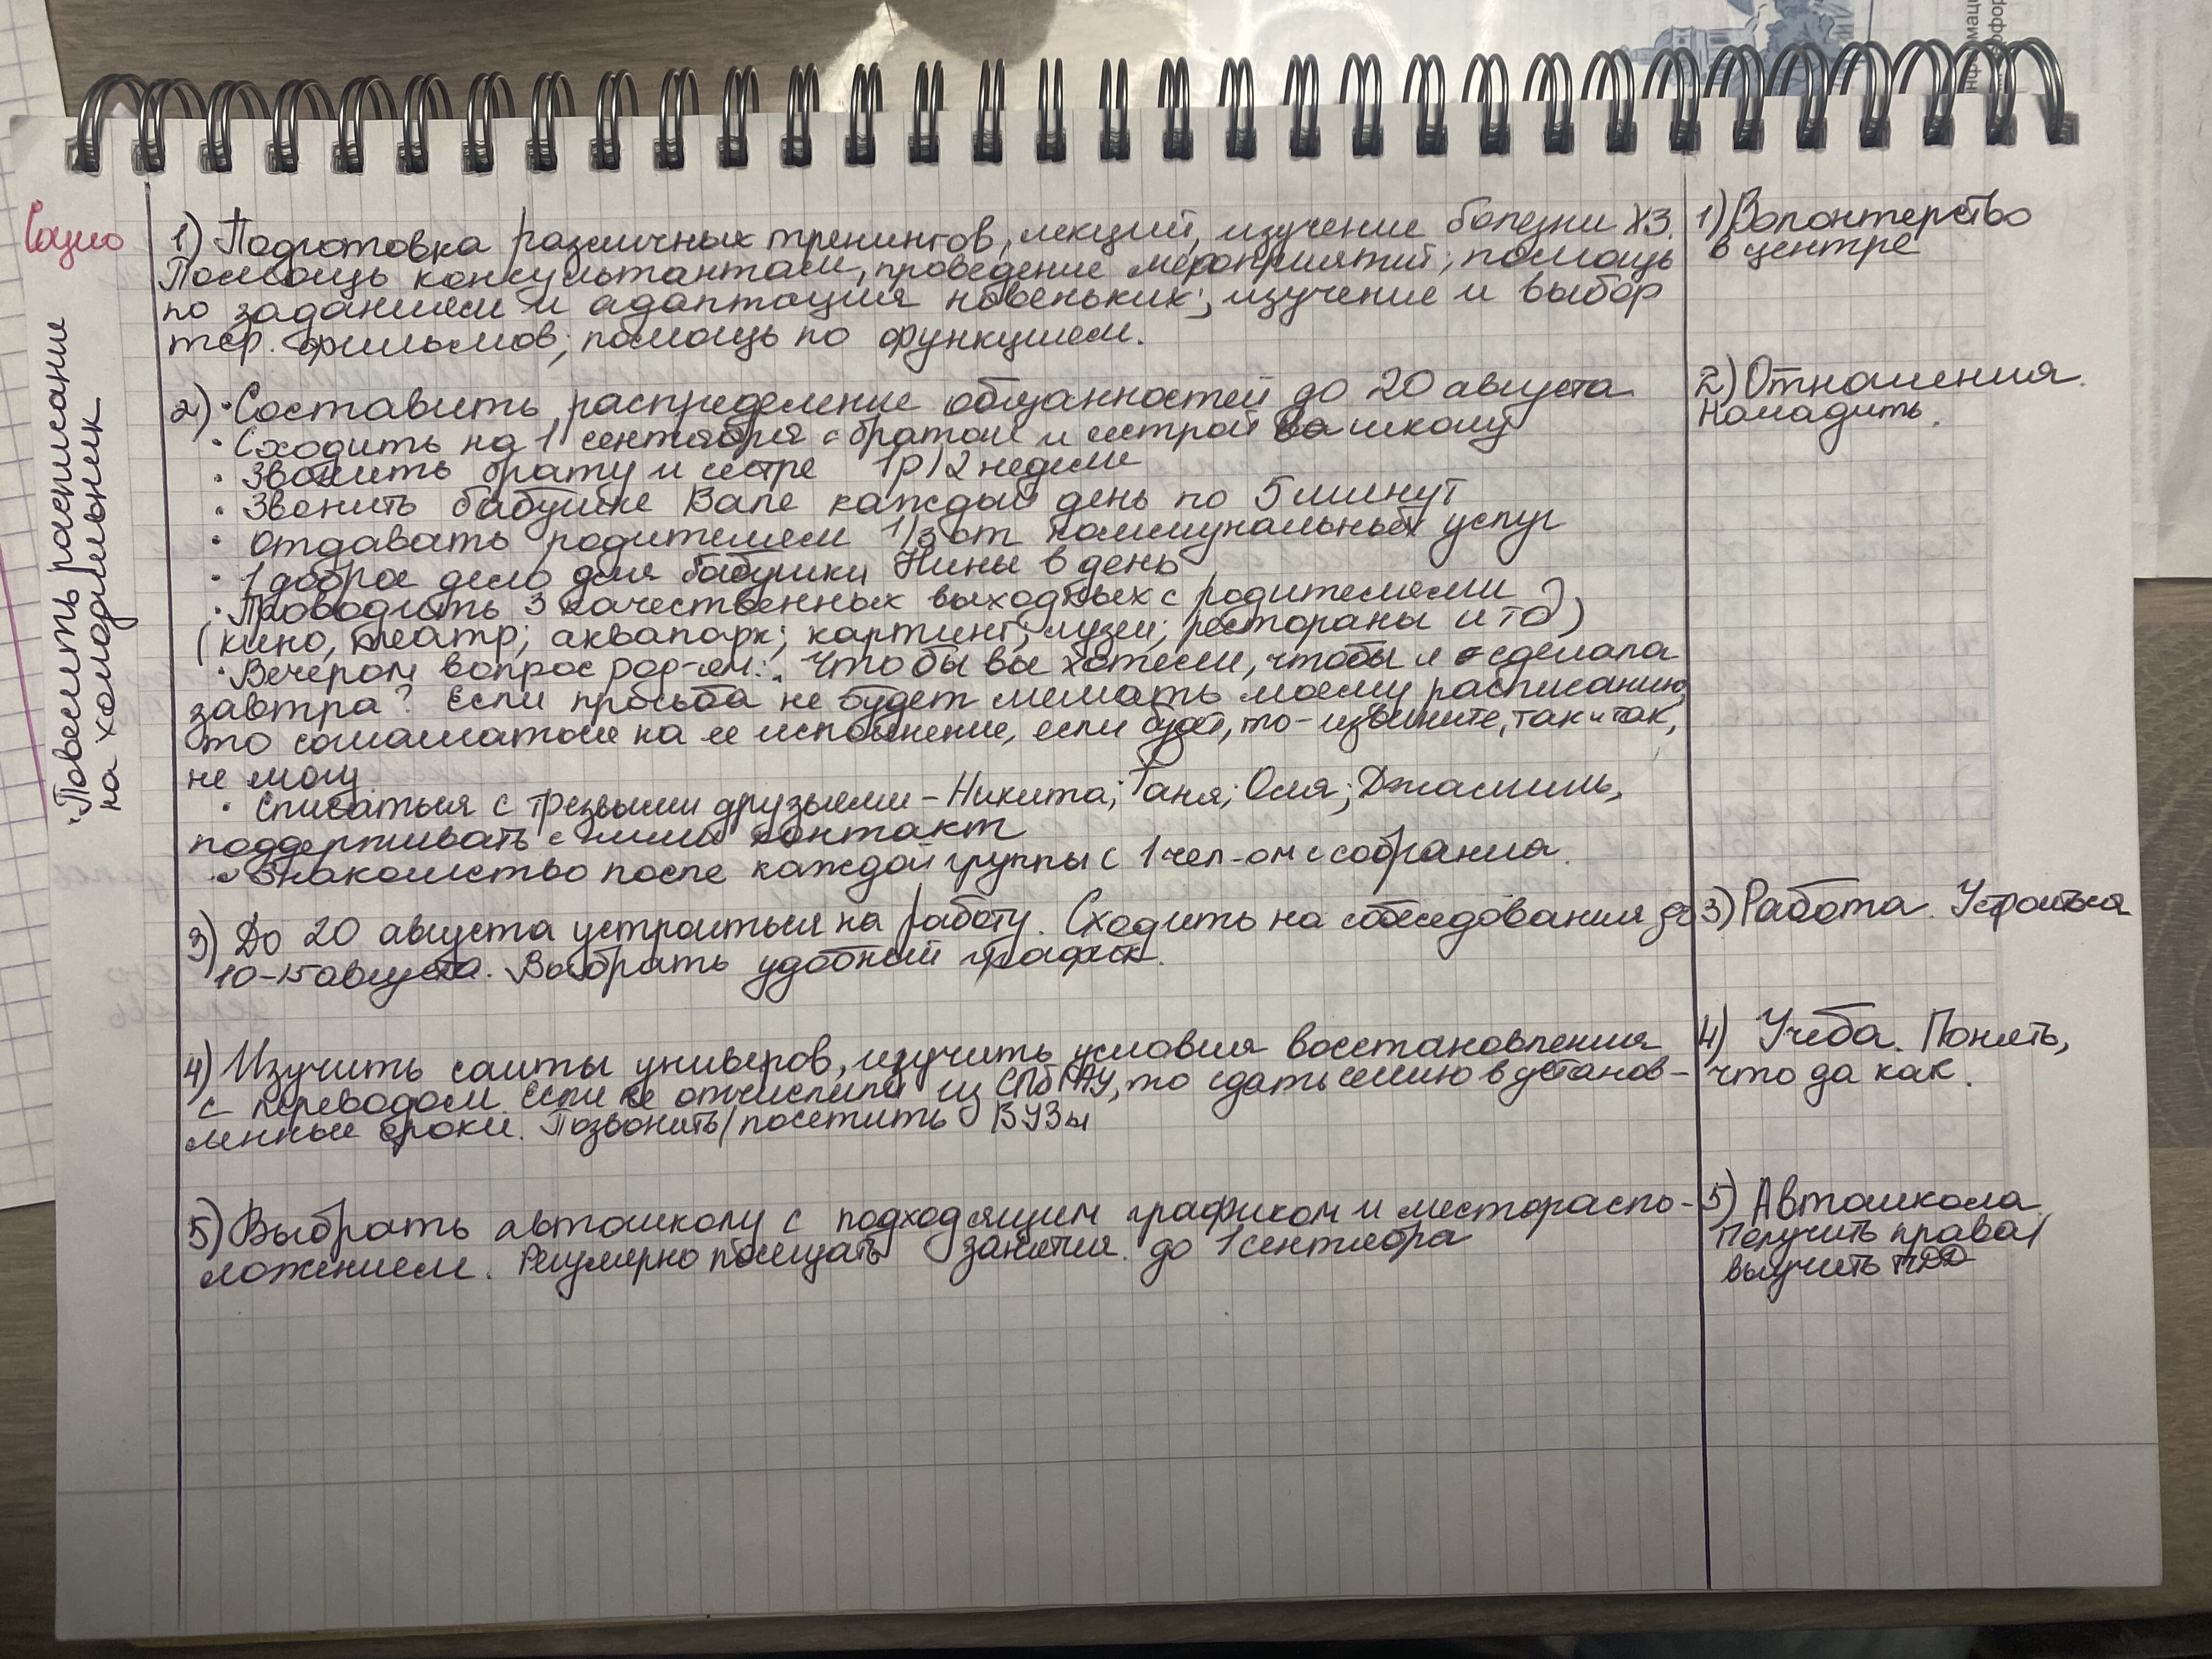 Социо
· Повесить расписание
на холодильник
1) Подготовка различных тренингов, лекций, изучение болезни ХЗ.
Помощь консультантам, проведение мероприятий; помощь
по заданием и адаптация новеньких; изучение и выбор
тер. фильмов; помощь по функциям.
2) · Составить распределение обязанностей до 20 августа
· Сходить на 1 сентября с братом и сестрой в школу
· Звонить брату и сестре 1р/2 недели
· Звонить бабушке Вале каждый день по 5 минут
· Отдавать родителям 1/3 от коммунальных услуг
· 1 доброе дело для бабушки Нины в день
· Проводить 3 качественных выходных с родителями
(кино, театр; аквапарк; картинг; музеи; рестораны и тд)
· Вечером вопрос род-ям: Что бы вы хотели, чтобы я сделала
завтра? Если просьба не будет мешать моему расписанию,
то соглашаться на её исполнение, если будет, то - извините, так и так,
не могу.
· Списаться с трезвыми друзьями - Никита; Таня; Оля; Джамиль,
поддерживать с ними контакт
· Знакомство после каждой группы с 1 чел-ом с собрания.
3) До 20 августа устроиться на работу. Сходить на собеседования до
10-15 августа. Выбрать удобный график.
4) Изучить сайты универов, изучить условия восстановления
с переводом. Если не отчислили из СПбГАУ, то сдать сессию в установ-
ленные сроки. Позвонить/посетить ВУЗы
5) Выбрать автошколу с подходящим графиком и месторасположе-
ложением. Регулярно посещать занятия до 1 сентября
1) Волонтерство
в центре
2) Отношения.
Наладить.
3) Работа. Устроиться
4) Учеба. Понять,
что да как.
5) Автошкола
Получить права/
выучить ПДД